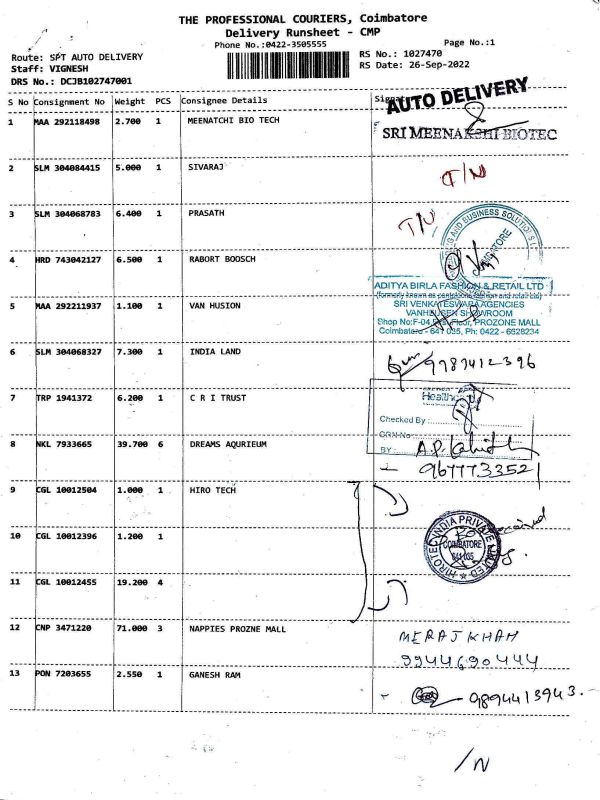 THE PROFESSIONAL COURIERS, Coimbatore
Delivery Runsheet - CMP
Phone No.:0422-3505555
Page No.:1
Route: SPT AUTO DELIVERY
RS No.: 1027470
Staff: VIGNESH
RS Date: 26-Sep-2022
DRS No.: DCJB102747001
S No Consignment No Weight PCS Consignee Details
AUTO DELIVERY
1 MAA 292118498 2.700 1 MEENATCHI BIO TECH
SRI MEENAKSHI BIOTEC
2 SLM 304084415 5.000 1 SIVARAJ
T/N
3 SLM 304068783 6.400 1 PRASATH
T/N
AND BUSINESS SOLUTIONS
4 HRD 743042127 6.500 1 RABORT BOOSCH
ADITYA BIRLA FASHION & RETAIL LTD
5 MAA 292211937 1.100 1 VAN HUSION
SRI VENKATESWARA AGENCIES
VANHEUSEN SHOWROOM
Floor, PROZONE MALL
Coimbatore - 641 035, Ph: 0422 - 6628234
6 SLM 304068327 7.300 1 INDIA LAND
9787412396
7 TRP 1941372 6.200 1 C R I TRUST
Checked By
GRN No
BY
8 NKL 7933665 39.700 6 DREAMS AQURIEUM
9677733521
9 CGL 10012504 1.000 1 HIRO TECH
10 CGL 10012396 1.200 1
HIROTEC INDIA PRIVATE LIMITED
COIMBATORE
641 035
Received
11 CGL 10012455 19.200 4
12 CNP 3471220 71.000 3 NAPPIES PROZNE MALL
MERAJ KHAN
9944690444
13 PON 7203655 2.550 1 GANESH RAM
9894413943.
/N